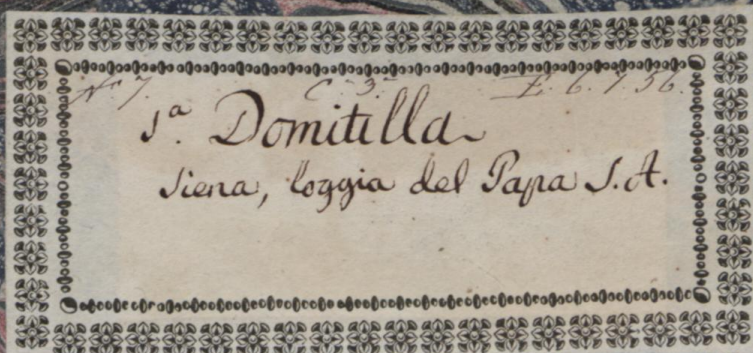 N° 7. C. 3. E. 6. 7. 56.
S.ª Domitilla
Siena, loggia del Papa S. A.